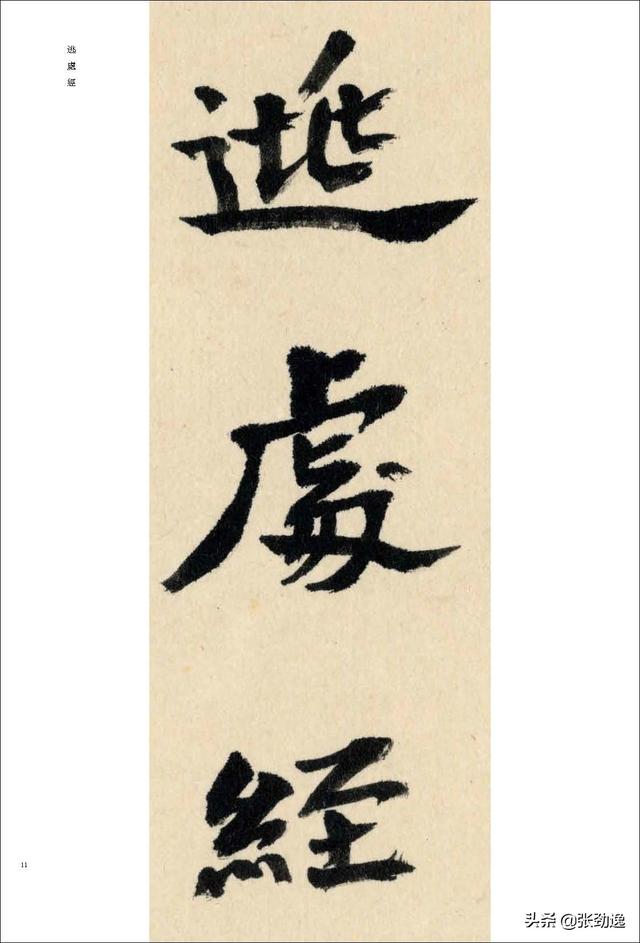 逃處經
逃處經
11
头条 @张劲逸